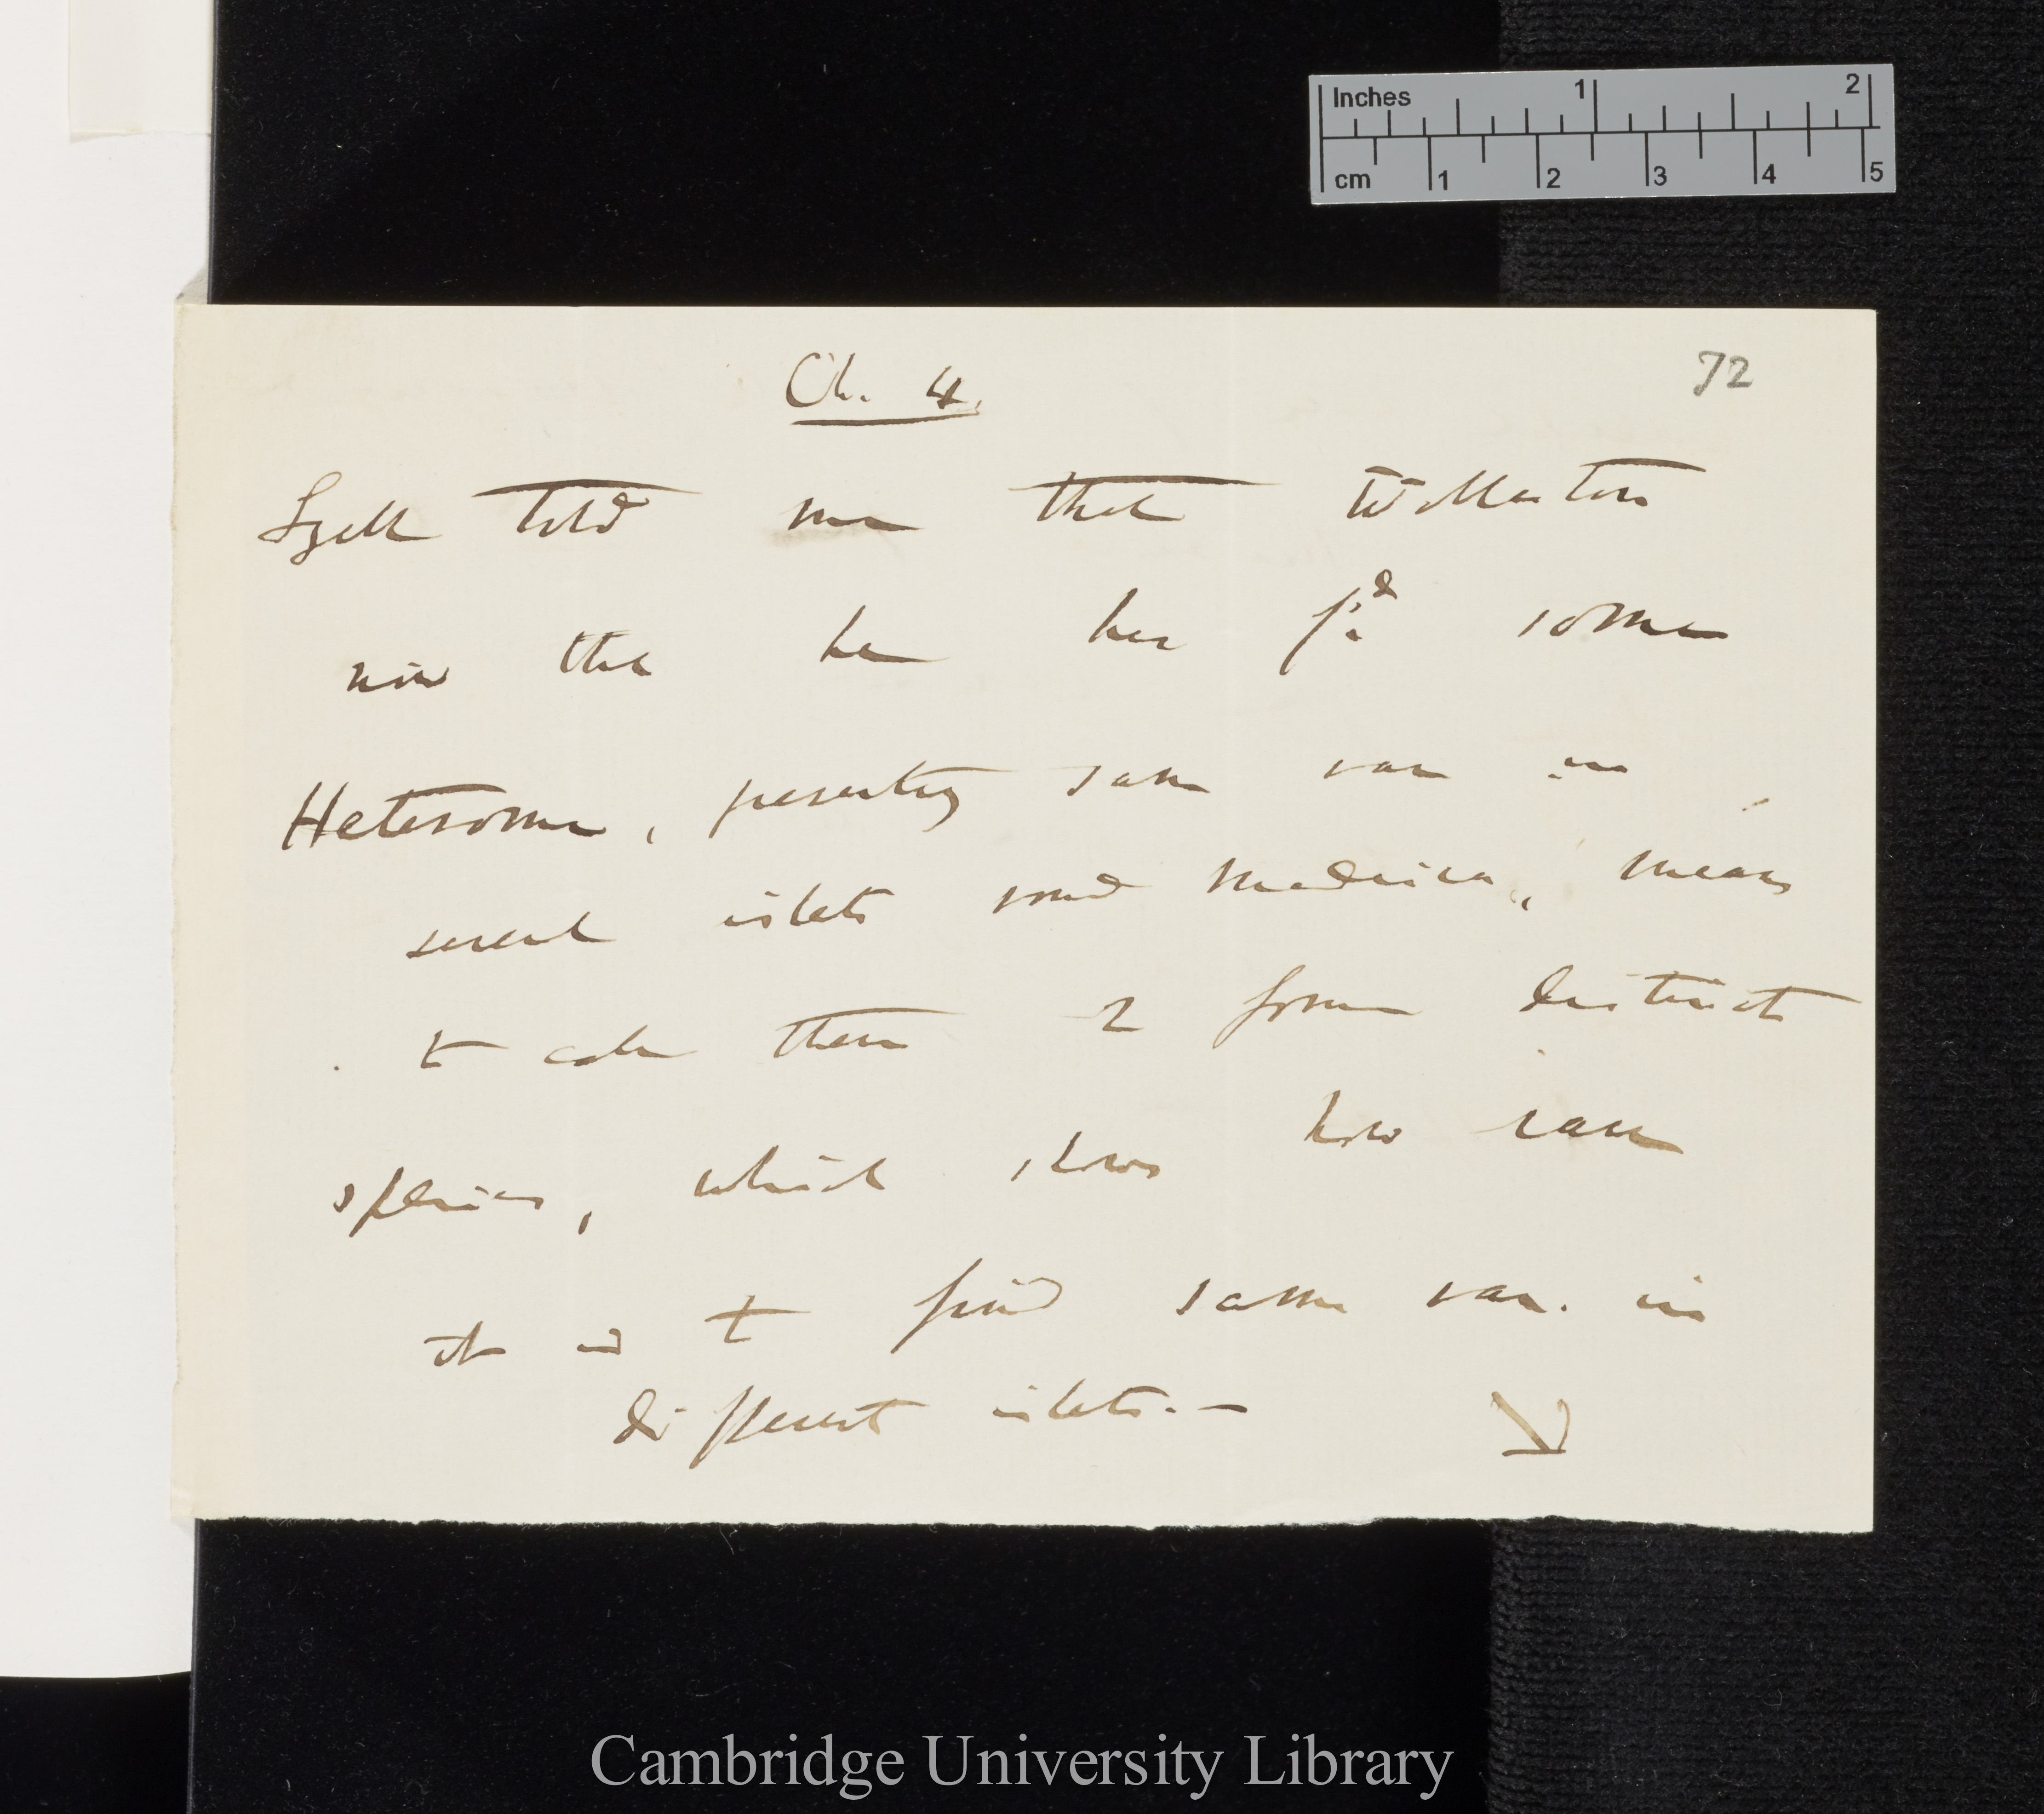 Inches 1 2
cm 1 2 3 4 5
Ch. 4.
72
Lyell told me that Wollaston
now that he has f.d some
Heteromera, presenting same var in
several islets round Madeira, means
to call them 2 form distinct
species, which shows how rare
it is to find same var. in
different islets.—
Cambridge University Library